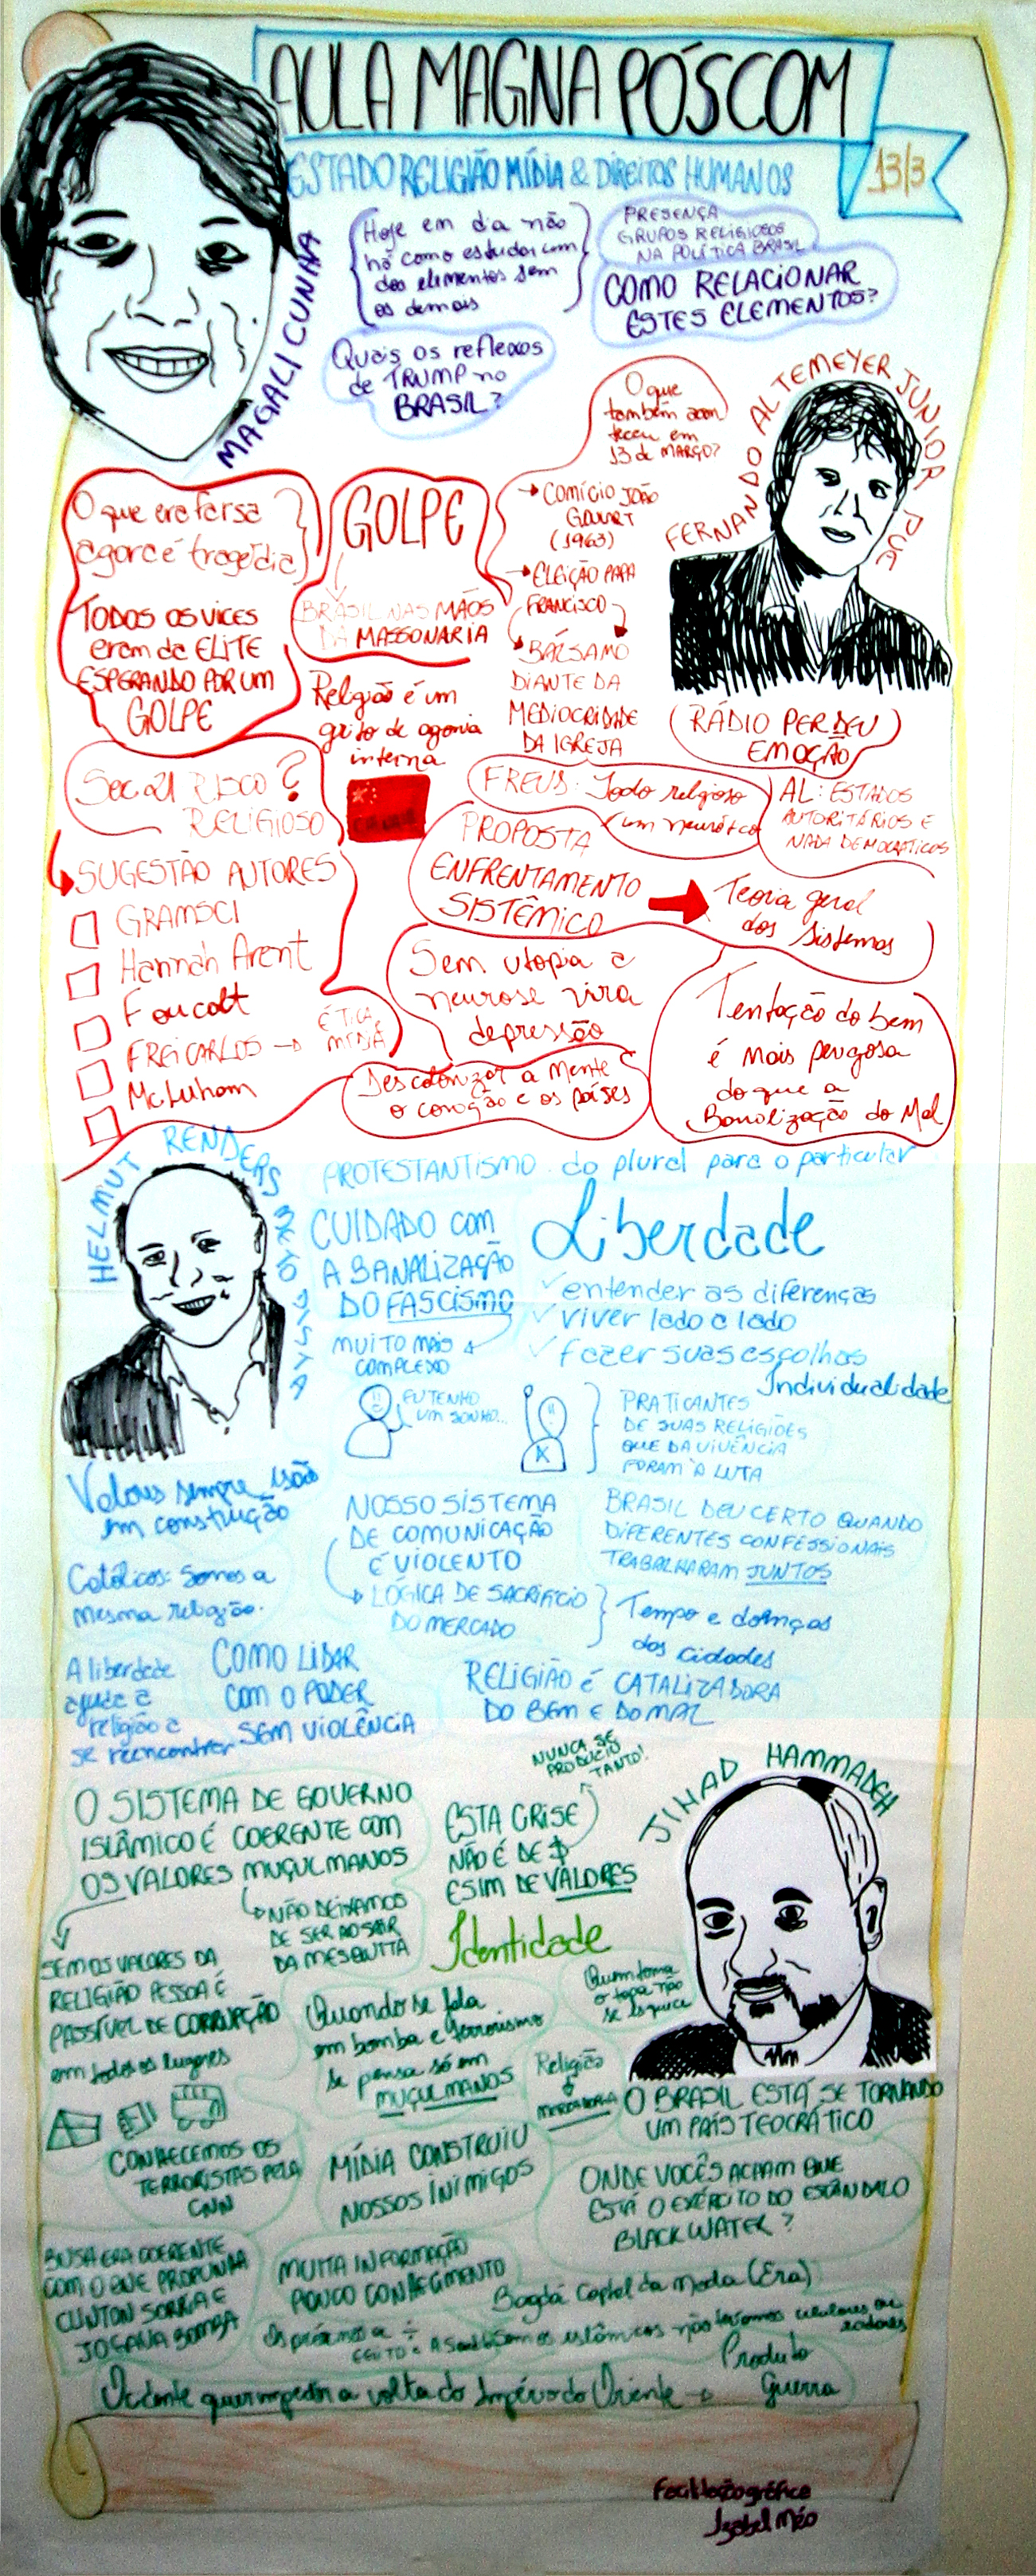 AULA MAGNA PÓSCOM
13/3
ESTADO RELIGIÃO MÍDIA & DIREITOS HUMANOS
MAGALI CUNHA
Hoje em dia não
há como estudar um
dos elementos sem
os demais
PRESENÇA
GRUPOS RELIGIOSOS
NA POLÍTICA BRASIL
COMO RELACIONAR
ESTES ELEMENTOS?
Quais os reflexos
de TRUMP no
BRASIL?
FERNANDO ALTEMEYER JUNIOR PUC
O que
também acon
teceu em
13 de MARÇO?
→ COMÍCIO JOÃO
GOULART
(1963)
→ ELEIÇÃO PAPA
FRANCISCO
BÁLSAMO
DIANTE DA
MEDIOCRIDADE
DA IGREJA
O que era farsa
agora é tragédia
TODOS OS VICES
eram da ELITE
ESPERANDO POR UM
GOLPE
GOLPE
BRASIL NAS MÃOS
DA MASSONARIA
Religião é um
grito de agonia
interna
(RÁDIO PERDEU
EMOÇÃO)
Sec 21 RISCO?
RELIGIOSO
FREUS: Todo religioso
um neurótico
AL: ESTADOS
AUTORITÁRIOS E
NADA DEMOCRÁTICOS
PROPOSTA
ENFRENTAMENTO
SISTÊMICO
Teoria geral
dos sistemas
SUGESTÃO AUTORES
GRAMSCI
Hannah Arent
Foucalt
FREI CARLOS → ÉTICA,
MÍDIA
McLuham
Sem utopia a
neurose vira
depressão
Descolonizar a mente
o coração e os países
Tentação do bem
é mais perigosa
do que a
Banalização do Mal
HELMUT RENDERS METODISTA
PROTESTANTISMO do plural para o particular
CUIDADO com
A BANALIZAÇÃO
DO FASCISMO
MUITO MAIS
COMPLEXO
Liberdade
✓ entender as diferenças
✓ viver lado a lado
✓ fazer suas escolhas
Individualidade
EU TENHO
UM SONHO...
PRATICANTES
DE SUAS RELIGIÕES
QUE DA VIVÊNCIA
FORAM À LUTA
Valores sempre estão
em construção
NOSSO SISTEMA
DE COMUNICAÇÃO
É VIOLENTO
LÓGICA DE SACRIFÍCIO
DO MERCADO
Tempo e doenças
das cidades
BRASIL DEU CERTO QUANDO
DIFERENTES CONFESSIONAIS
TRABALHARAM JUNTOS
Católicos: Somos a
mesma religião.
A liberdade
ajuda a
religião a
se reencontrar
COMO LIDAR
COM O PODER
SEM VIOLÊNCIA
RELIGIÃO É CATALIZADORA
DO BEM E DO MAL
JIHAD HAMMADEH
NUNCA SE
PRODUZIU
TANTO!
O SISTEMA DE GOVERNO
ISLÂMICO É COERENTE com
OS VALORES MUÇULMANOS
NÃO DEIXAMOS
DE SER AO SAIR
DA MESQUITA
ESTA CRISE
NÃO É DE $
E SIM DE VALORES
SEM OS VALORES DA
RELIGIÃO PESSOA É
PASSÍVEL DE CORRUPÇÃO
em todos os lugares
Identidade
Quando se fala
em bomba e terrorismo
se pensa só em
MUÇULMANOS
Quem toma
o tapa não
se esquece
Religião
MERCADORIA
O BRASIL ESTÁ SE TORNANDO
UM PAÍS TEOCRÁTICO
CONHECEMOS OS
TERRORISTAS PELA
CNN
MÍDIA CONSTRUIU
NOSSOS INIMIGOS
ONDE VOCÊS ACHAM QUE
ESTÁ O EXÉRCITO DO ESCÂNDALO
BLACK WATER?
BUSH ERA COERENTE
COM O QUE PROPUNHA
CLINTON SORRIA E
JOGAVA BOMBA
MUITA INFORMAÇÃO
POUCO CONHECIMENTO
Bagdá Capital da Moda (Era)
islâmicos não teríamos celulares ou
Ocidente quer impedir a volta do Império do Oriente →
Produto
Guerra
Facilitação gráfica
Izabel Méo